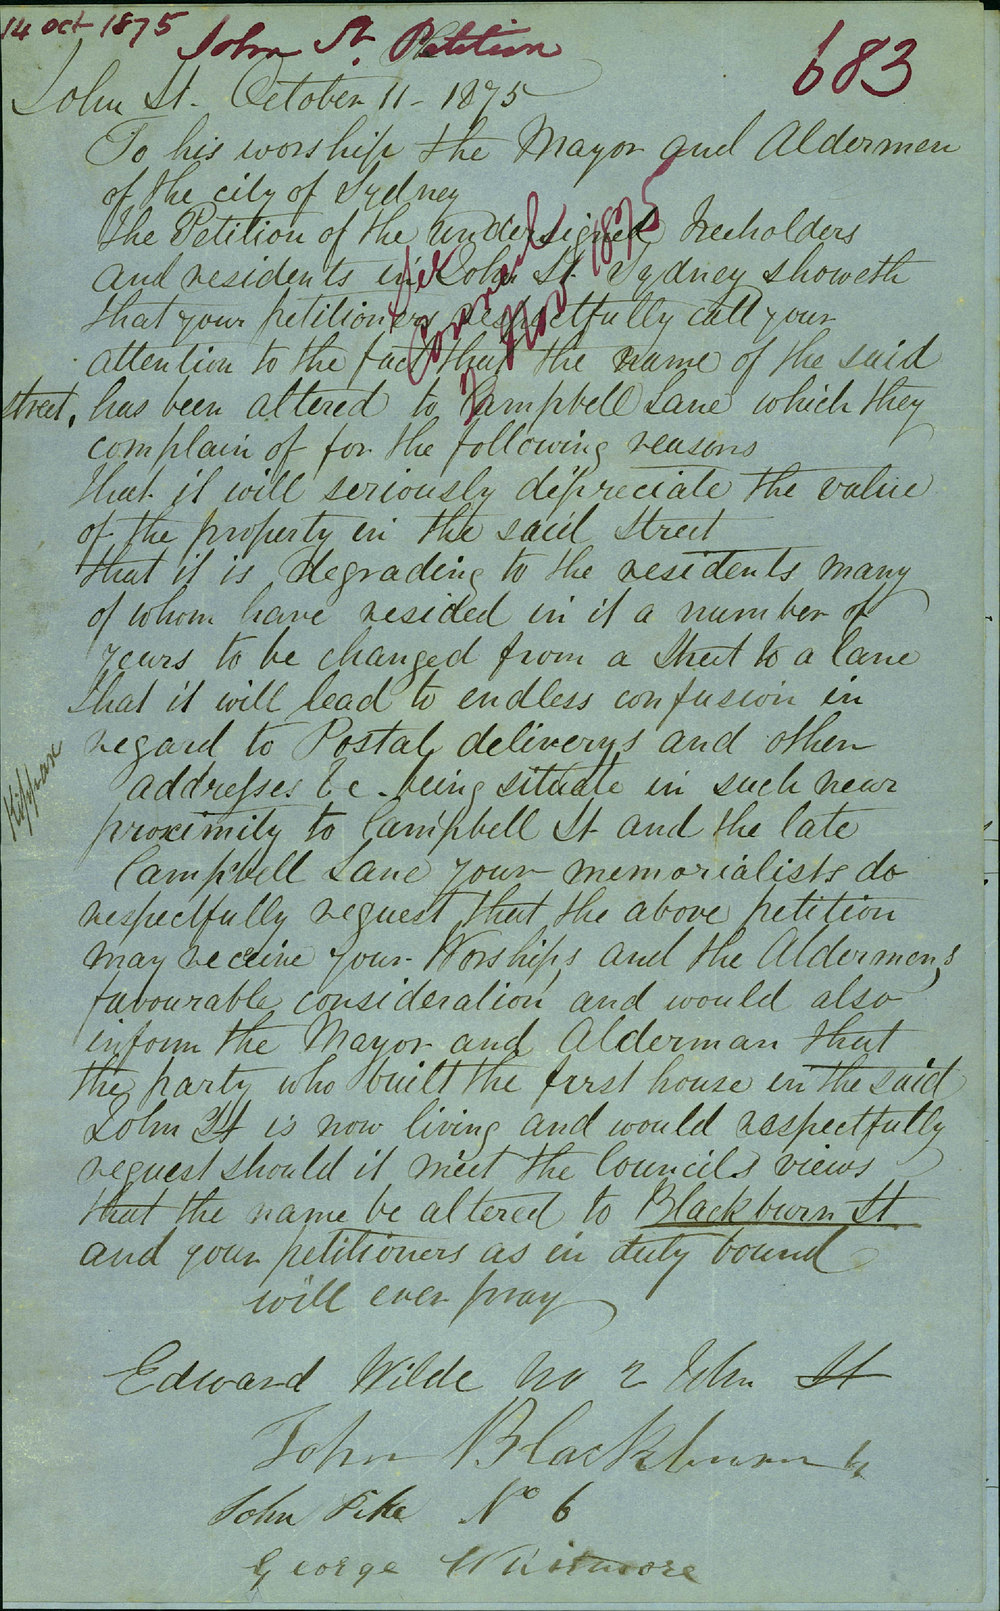 14 oct 1875
John St. Petition
683
John St. October 11 - 1875
To his worship the Mayor and Aldermen
of the city of Sydney
The Petition of the undersigned Freeholders
and residents in John St. Sydney showeth
that your petitioners respectfully call your
attention to the fact that the name of the said
street, has been altered to Campbell Lane which they
complain of for the following reasons
that it will seriously depreciate the value
of the property in the said Street
that it is degrading to the residents many
of whom have resided in it a number of
years to be changed from a Street to a lane
that it will lead to endless confusion in
regard to Postal deliverys and other
addresses &c. being situate in such near
proximity to Campbell St and the late
Campbell Lane your memorialists do
respectfully request that the above petition
may receive your Worships and the Aldermens
favourable consideration and would also
inform the Mayor and Alderman that
the party who built the first house in the said
John St is now living and would respectfully
request should it meet the Councils views
that the name be altered to Blackburn St
and your petitioners as in duty bound
will ever pray
Edward Wilde No 2 John St
John Blackburn 4
John Pike No 6
George Whitmore
Kippax
See
Council
2 Nov 1875